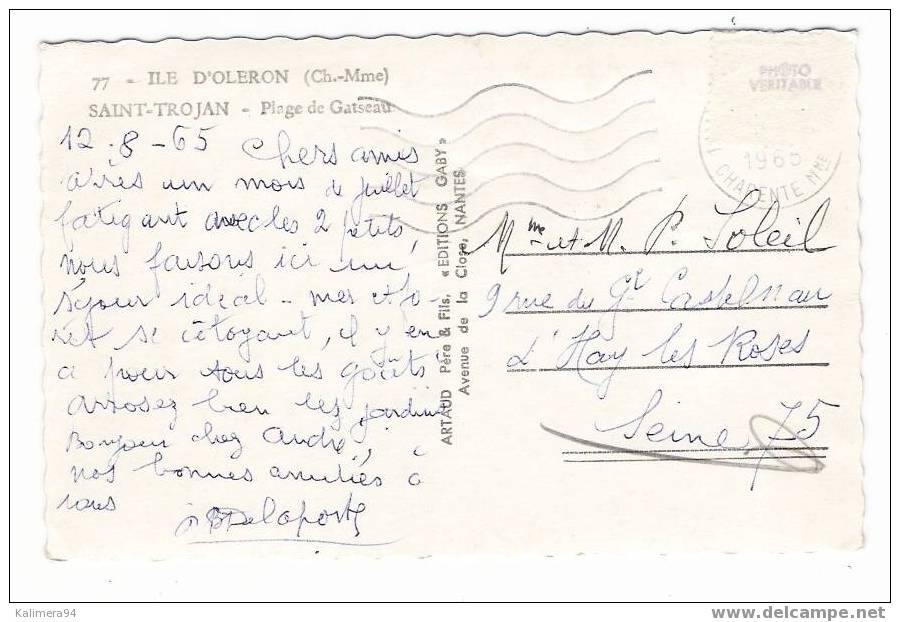 77 - ILE D'OLERON (Ch.-Mme)
SAINT-TROJAN - Plage de Gatseau
12-8-65 Chers amis
après un mois de juillet
fatigant avec les 2 petits,
nous faisons ici un
séjour idéal - mer et fo-
rêt se côtoyant, il y en
a pour tous les goûts
arrosez bien les jardins
Bonjour chez André,
nos bonnes amitiés à
tous
Delaporte
ARTAUD Père & Fils, « EDITIONS GABY »
Avenue de la Close, NANTES
PHOTO
VERITABLE
1965
CHARENTE Mme
Mme et M. P. Soleil
9 rue du Gl Castelnau
L'Hay les Roses
Seine 75
Kalimera94
www.delcampe.net